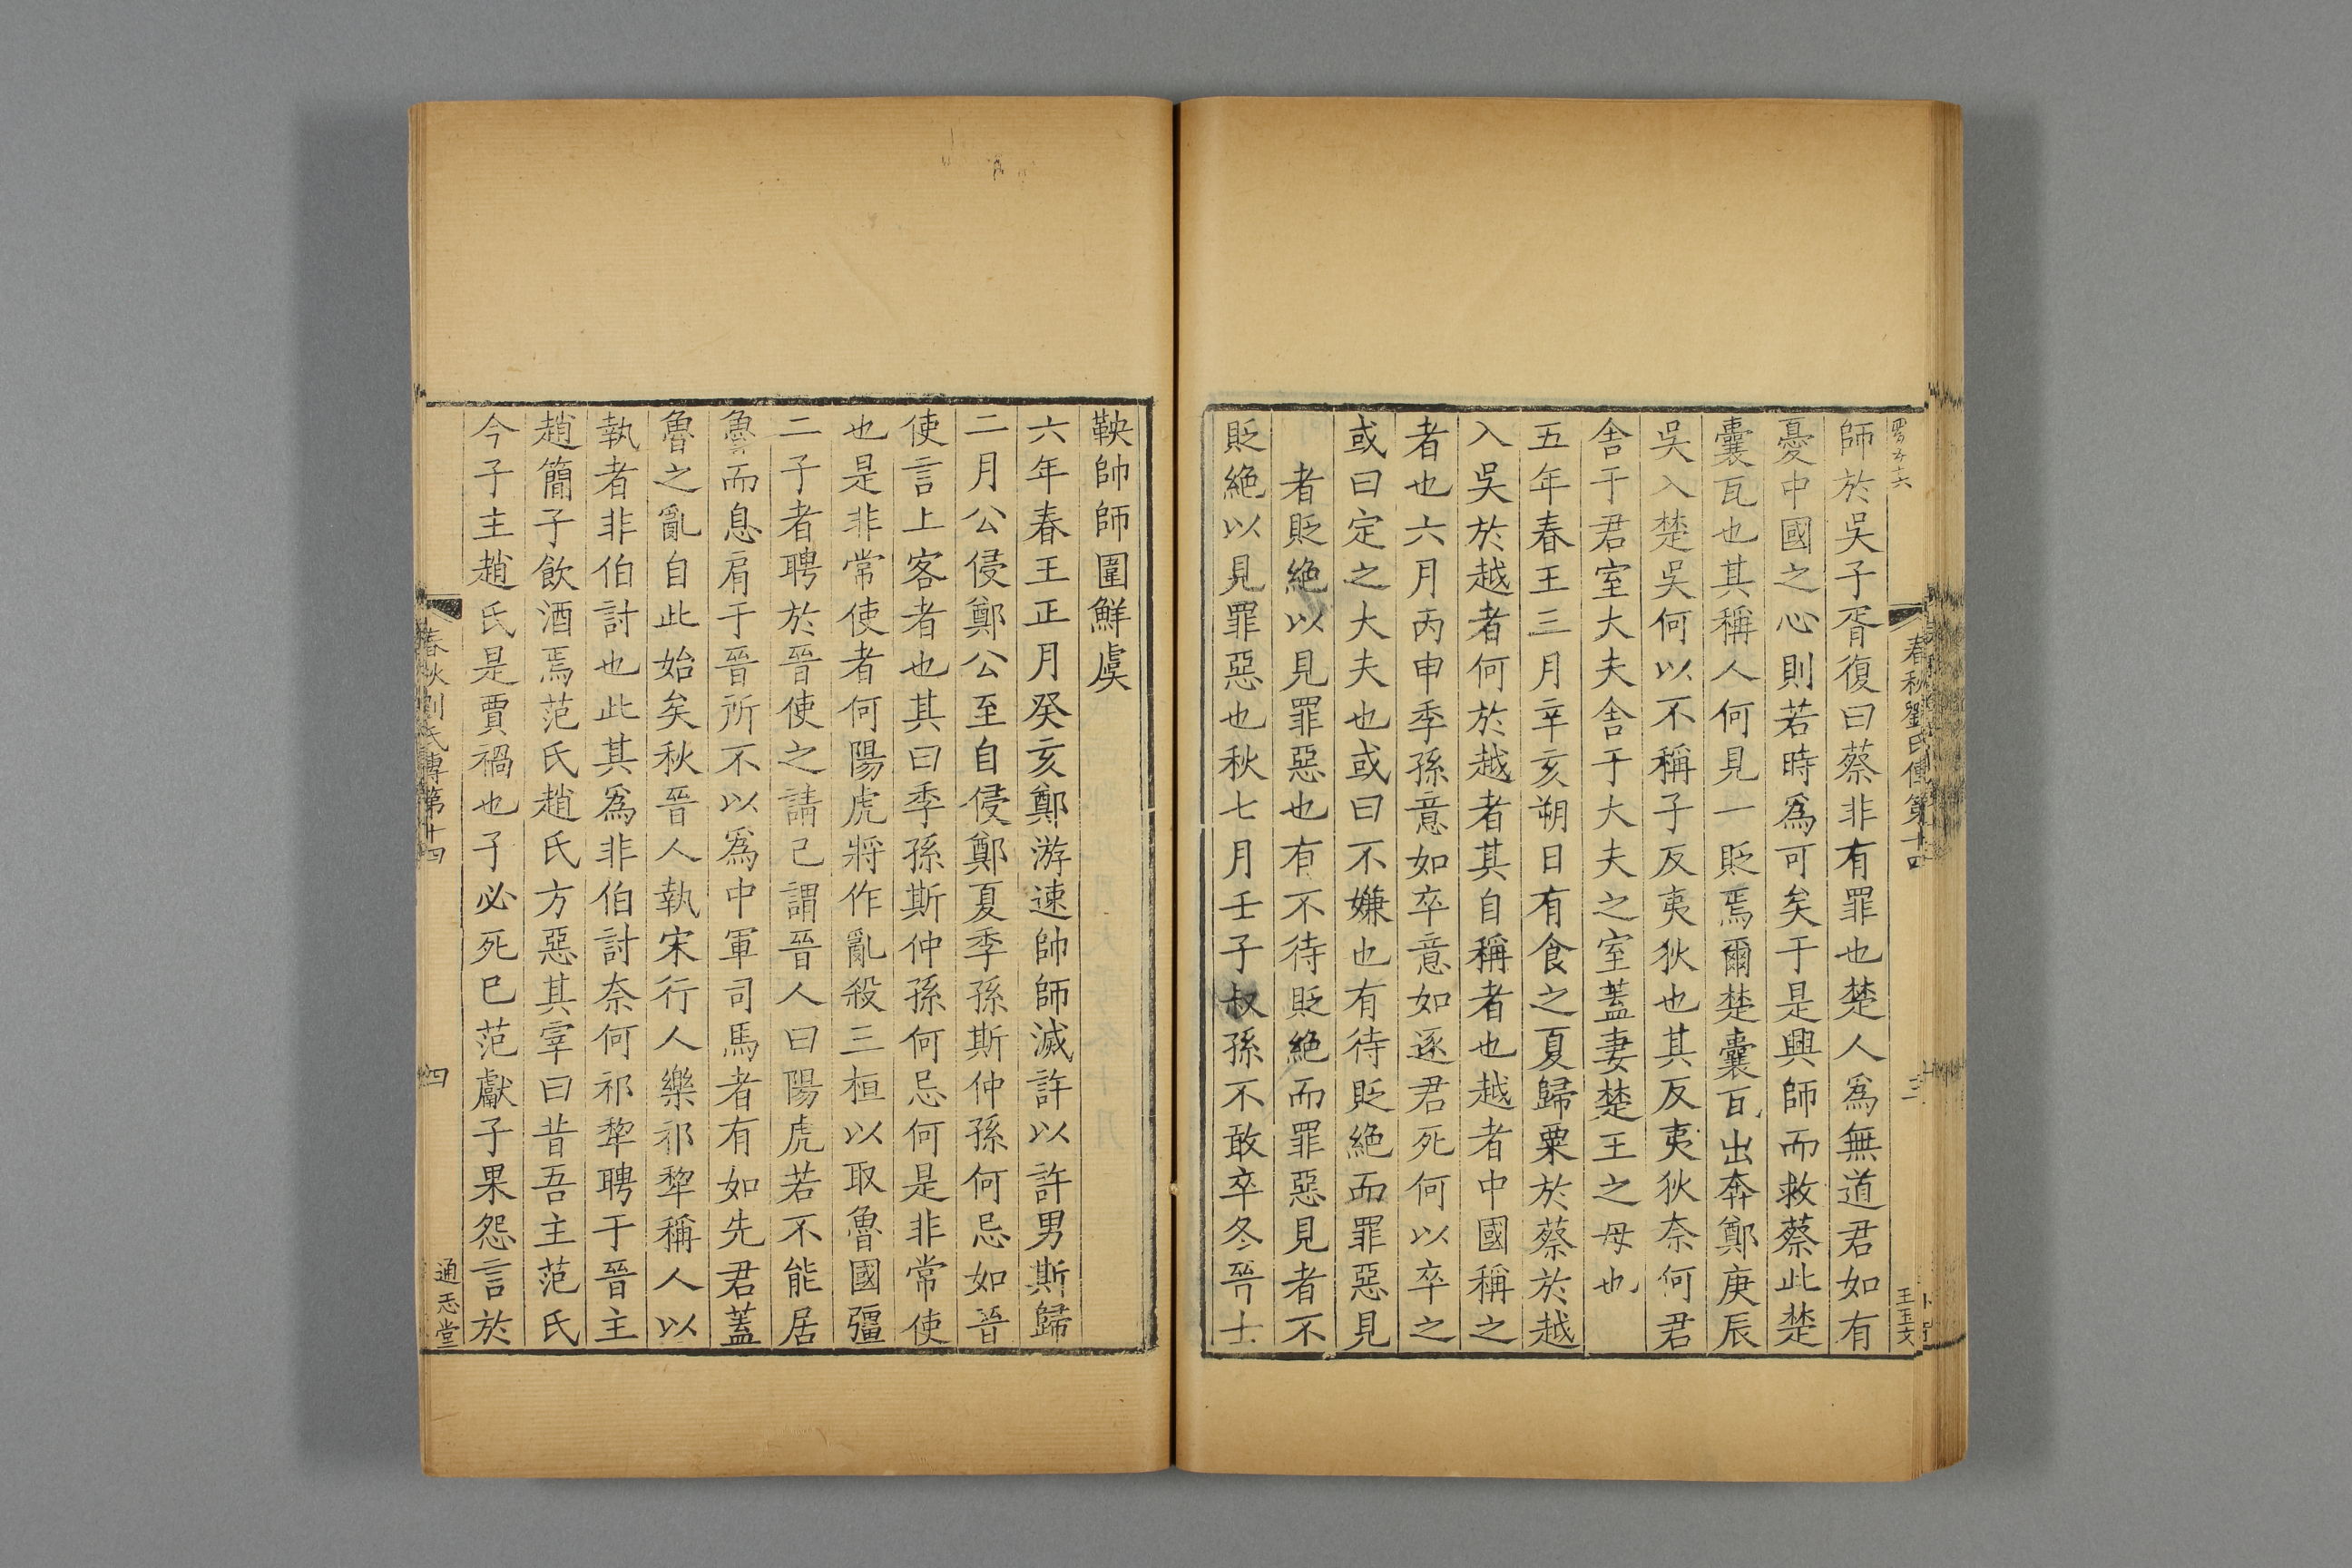 春秋劉氏傳第十四
三
王玉文
師於吳子胥復曰蔡非有罪也楚人爲無道君如有
憂中國之心則若時爲可矣于是興師而救蔡此楚
囊瓦也其稱人何見一貶焉爾楚囊瓦出奔鄭庚辰
吳入楚吳何以不稱子反夷狄也其反夷狄奈何君
舍于君室大夫舍于大夫之室蓋妻楚王之母也
五年春王三月辛亥朔日有食之夏歸粟於蔡於越
入吳於越者何於越者其自稱者也越者中國稱之
者也六月丙申季孫意如卒意如逐君死何以卒之
或曰定之大夫也或曰不嫌也有待貶絕而罪惡見
者貶絕以見罪惡也有不待貶絕而罪惡見者不
貶絕以見罪惡也秋七月壬子叔孫不敢卒冬晉士
鞅帥師圍鮮虞
六年春王正月癸亥鄭游速帥師滅許以許男斯歸
二月公侵鄭公至自侵鄭夏季孫斯仲孫何忌如晉
使言上客者也其曰季孫斯仲孫何忌何是非常使
也是非常使者何陽虎將作亂殺三桓以取魯國彊
二子者聘於晉使之請己謂晉人曰陽虎若不能居
魯而息肩于晉所不以爲中軍司馬者有如先君蓋
魯之亂自此始矣秋晉人執宋行人樂祁犂稱人以
執者非伯討也此其爲非伯討奈何祁犂聘于晉主
趙簡子飲酒焉范氏趙氏方惡其宰曰昔吾主范氏
今子主趙氏是賈禍也子必死已范獻子果怨言於
春秋劉氏傳第十四
四
通志堂